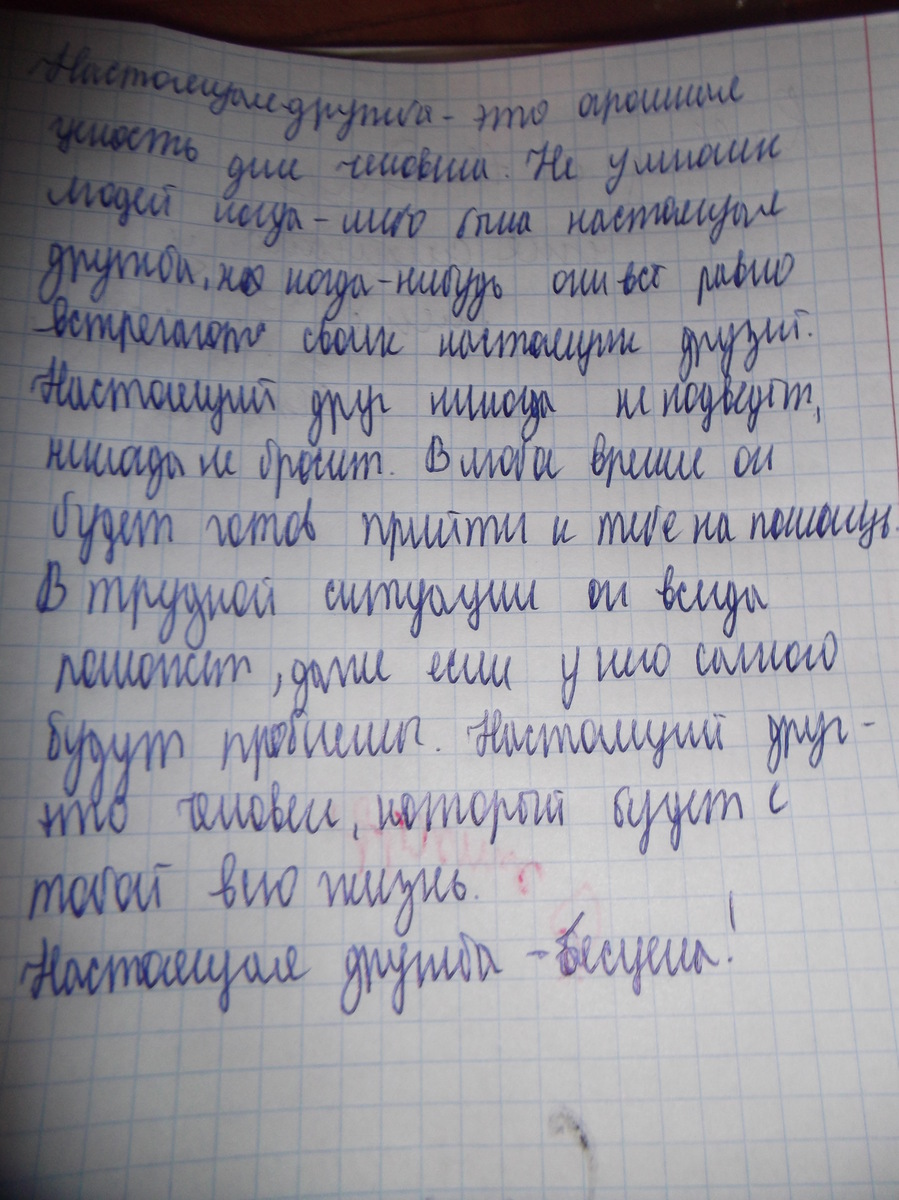 Настоящая дружба - это огромная
ценость для человека. Не у многих
людей когда-либо была настоящая
дружба, но когда-нибудь они всё равно
встречают своих настоящих друзей.
Настоящий друг никогда не подведёт,
никогда не бросит. В любое время он
будет готов прийти к тебе на помощь.
В трудной ситуации он всегда
поможет, даже если у него самого
будут проблемы. Настоящий друг -
это человек, который будет с
тобой всю жизнь.
Настоящая дружба - бесцена!